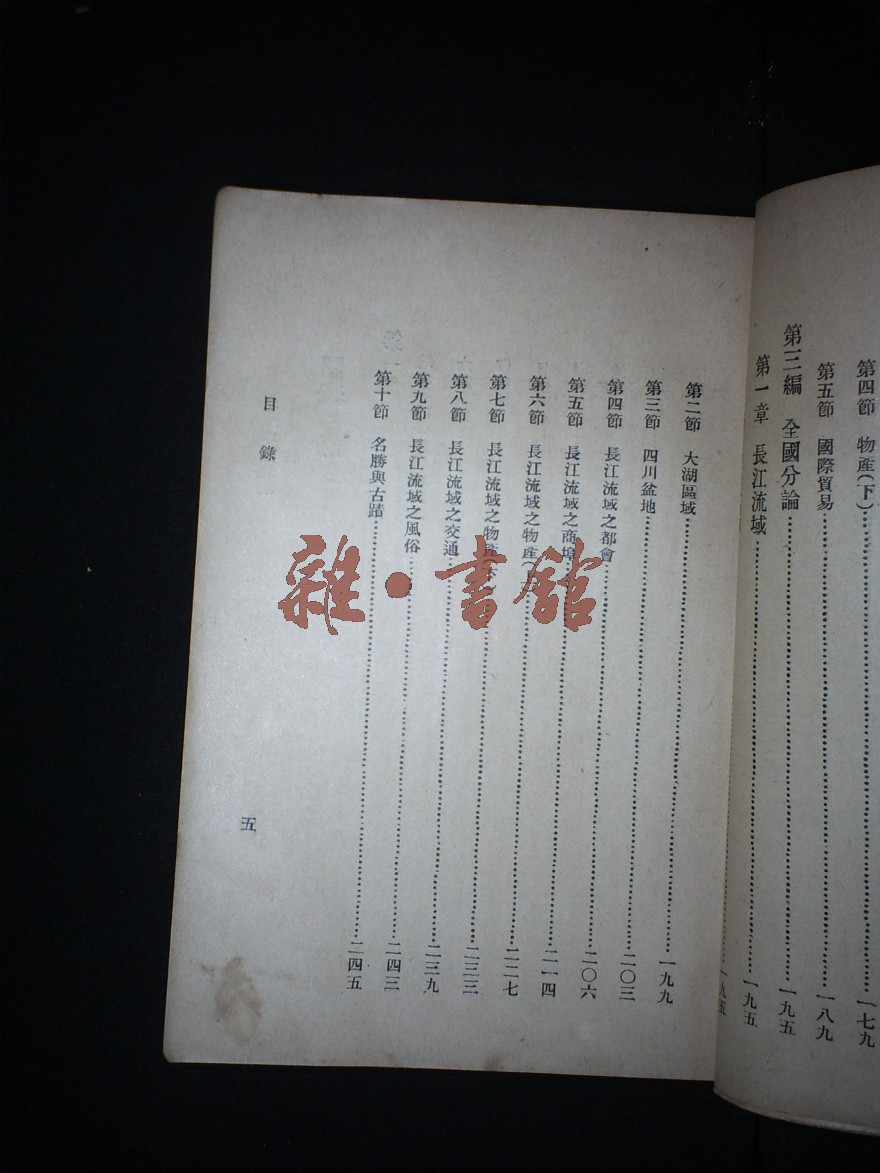 第四節 物產(下)……一七九
第五節 國際貿易……一八九
第三編 全國分論……一九五
第一章 長江流域……一九五
……一九五
第二節 大湖區域……一九九
第三節 四川盆地……二〇三
第四節 長江流域之都會……二〇六
第五節 長江流域之商埠……二一四
第六節 長江流域之物產(上)……二二七
第七節 長江流域之物產……二三三
第八節 長江流域之交通……二三九
第九節 長江流域之風俗……二四三
第十節 名勝與古蹟……二四五
目錄
五
雜·書館